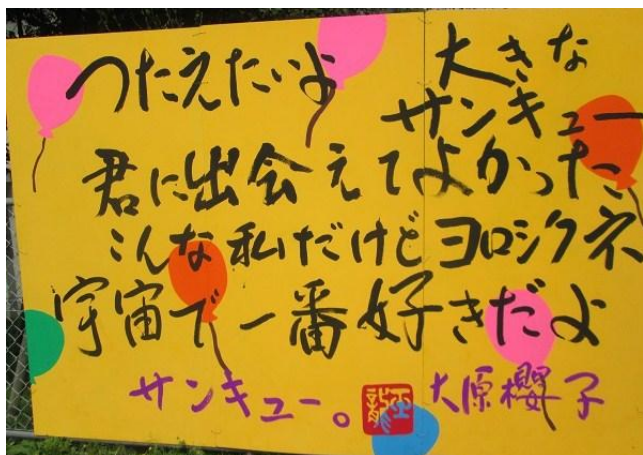 つたえたいよ 大きな
サンキュー
君に出会えてよかった
こんな私だけどヨロシクネ
宇宙で一番好きだよ
サンキュー。 大原櫻子